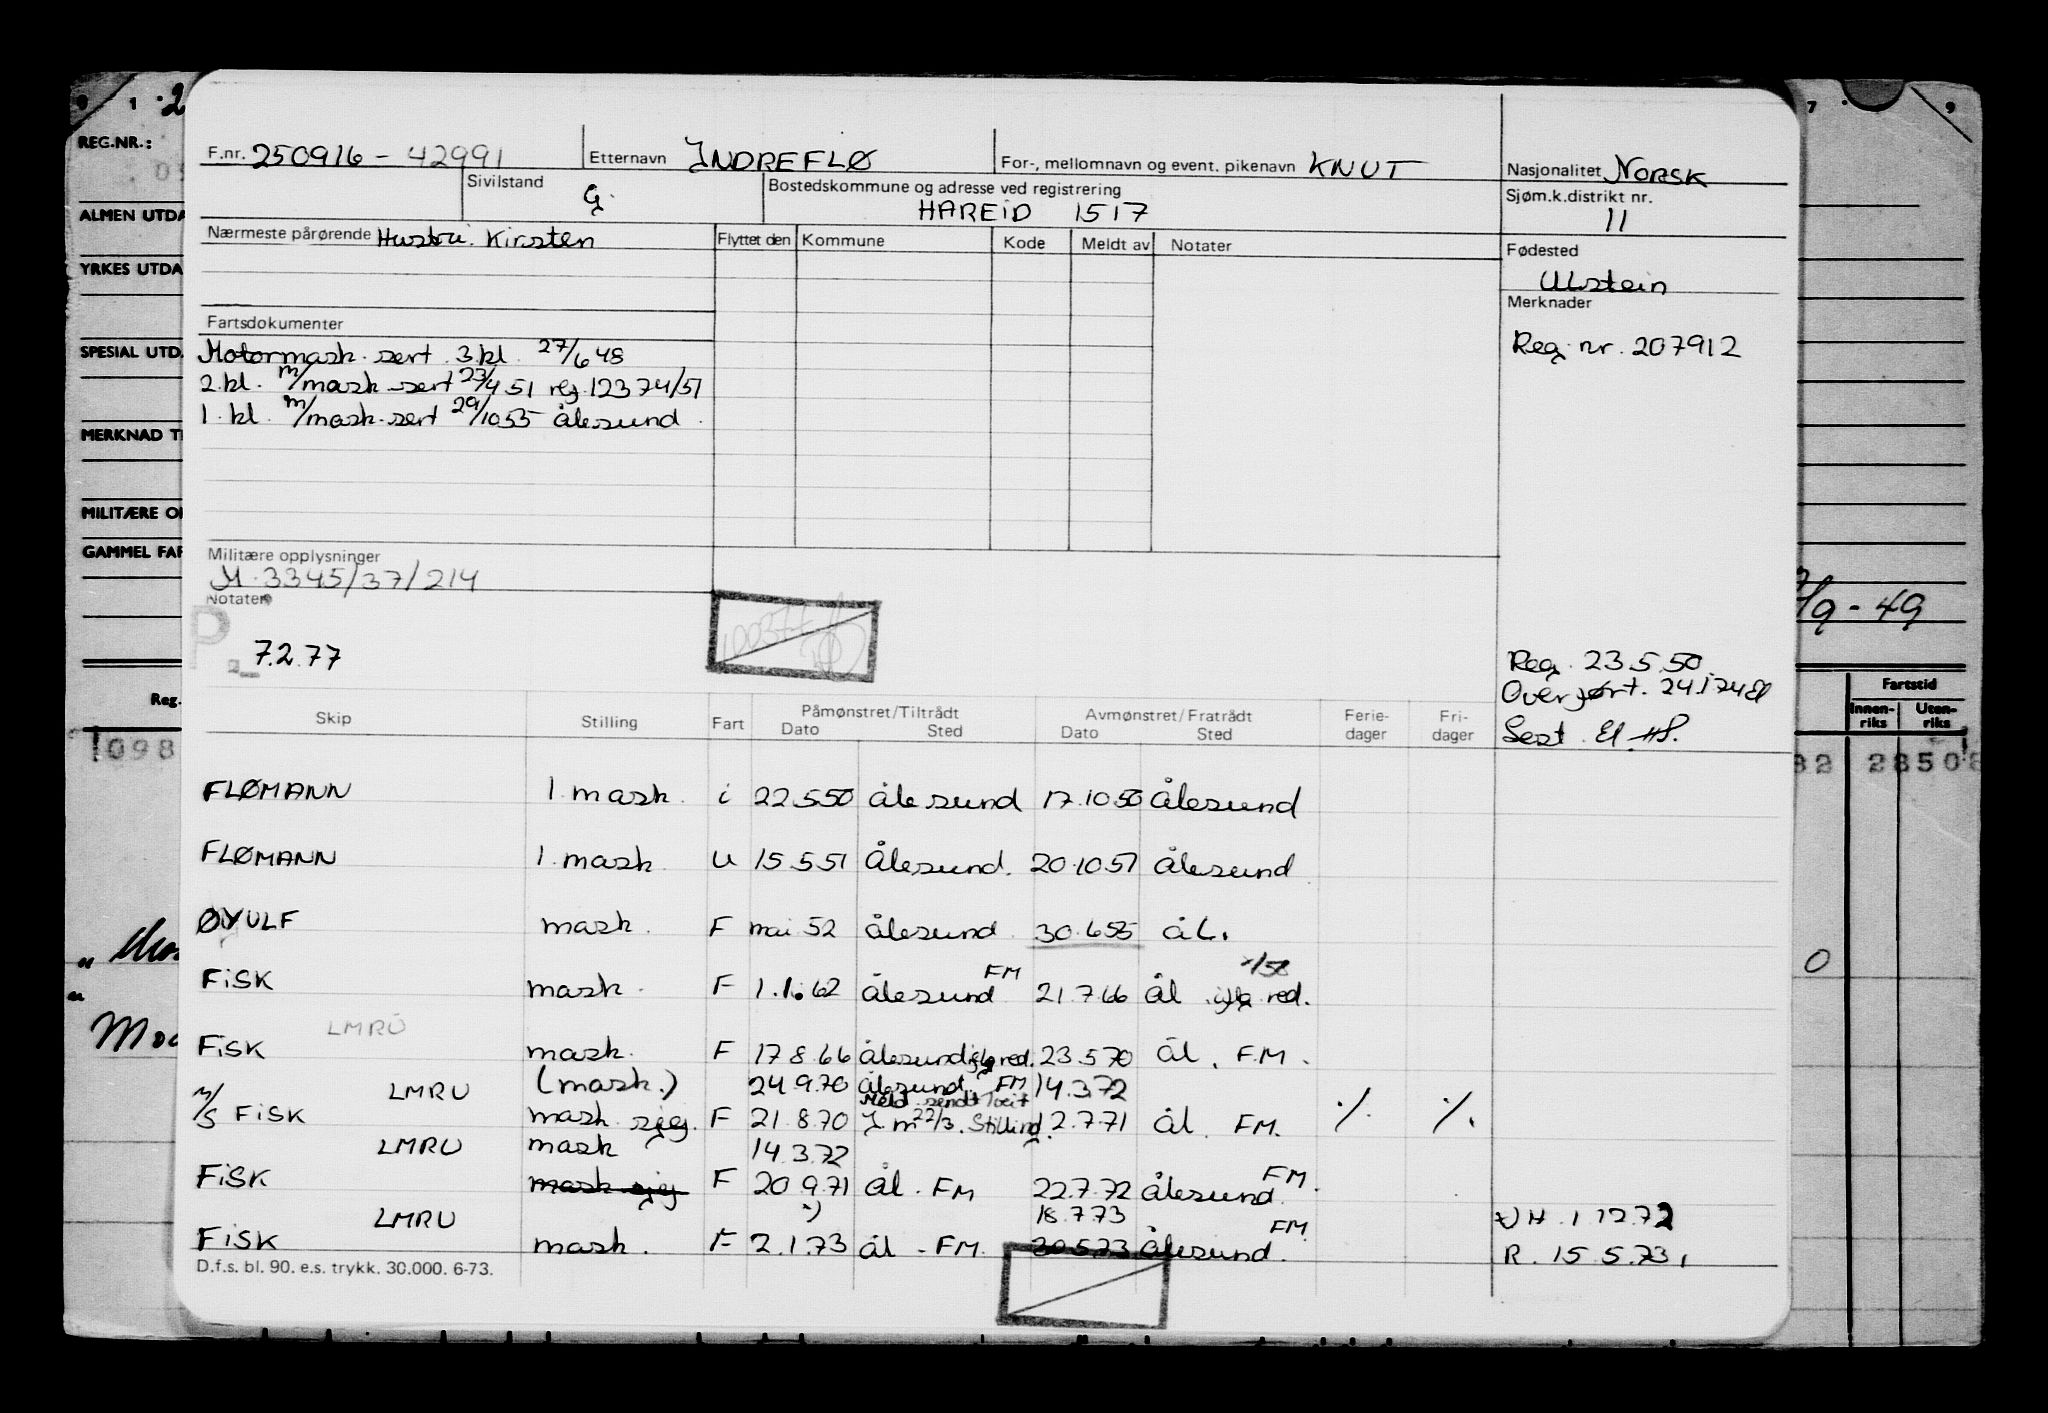 REG.NR.:
ALMEN UTDA
YRKES UTDA
SPESIAL UTD.
MERKNAD T
MILITÆRE O
GAMMEL FAR
Reg.
098
F.nr. 250916 - 42991 Etternavn INDREFLØ For-, mellomnavn og event. pikenavn KNUT Nasjonalitet NORSK
Sivilstand G. Bostedskommune og adresse ved registrering HAREID 1517 Sjøm.k.distrikt nr. 11
Nærmeste pårørende Hustru. Kirsten Flyttet den Kommune Kode Meldt av Notater
Fødested
Ulstein
Merknader
Reg. nr. 207912
Fartsdokumenter
Motormask. sert. 3.kl. 27/6 48
2.kl. m/mask sert 23/4 51 reg. 12374/51
1. kl. m/mask. sert 29/10 55 ålesund.
Militære opplysninger
M. 3345/37/214
Notater
P
7.2.77
7/9 - 49
Reg. 23.5.50.
Overført. 24.1.74 El
Sext. El. HS.
Skip Stilling Fart Påmønstret/Tiltrådt Dato Sted Avmønstret/Fratrådt Dato Sted Ferie-dager Fri-dager
Fartstid
Innen-riks Uten-riks
FLØMANN 1. mask. i 22.5.50 ålesund 17.10.50 ålesund
FLØMANN 1. mask. U 15.5.51 Ålesund. 20.10.51 Ålesund
ØYULF mask. F mai 52 ålesund 30.6.55 ål.
FISK mask. F 1.1.62 ålesund FM 21.7.66 ål. red.
LMRU
FISK mask. F 17.8.66 ålesund red. 23.5.70 ål. F.M.
LMRU (mask.) 24.9.70 ålesund. FM 14.3.72
M/S FISK mask. F 21.8.70 22/3. Stilling. 12.7.71 ål. FM. ./. ./.
LMRU mask 14.3.72
FISK F 20.9.71 ål. FM 22.7.72 ålesund FM.
LMRU 18.7.73
FISK mask. F 2.1.73 ål - FM. 30.5.73 ålesund. FM
1.12.72
R. 15.5.73,
D.f.s. bl. 90. e.s. trykk. 30.000. 6-73.